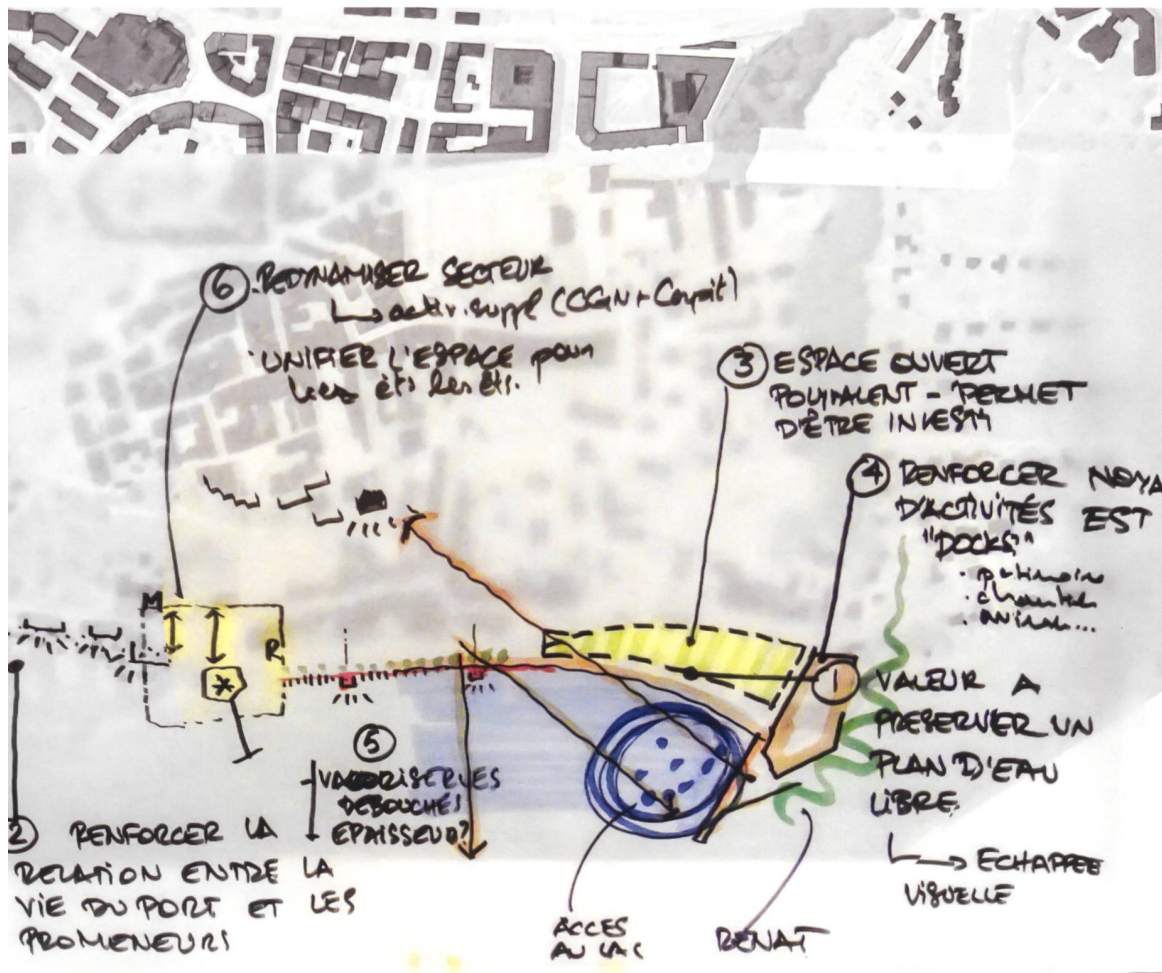 ⑥ . REDYNAMISER SECTEUR
↳ activ. suppl (CGN +
. UNIFIER L'ESPACE pour
les
③ ESPACE OUVERT
POLYVALENT - PERMET
D'ÊTRE INVESTI
④ RENFORCER NOYA
D'ACTIVITÉS EST
"DOCKS"
. patrimoine
. chantier
M
R
*
① VALEUR A
PRESERVER UN
PLAN D'EAU
LIBRE
→ ECHAPPEE
VISUELLE
⑤
VALORISER LES
DEBOUCHÉS
EPAISSEUR?
2 RENFORCER LA
RELATION ENTRE LA
VIE DU PORT ET LES
PROMENEURS
ACCES
AU LAC
RENAT